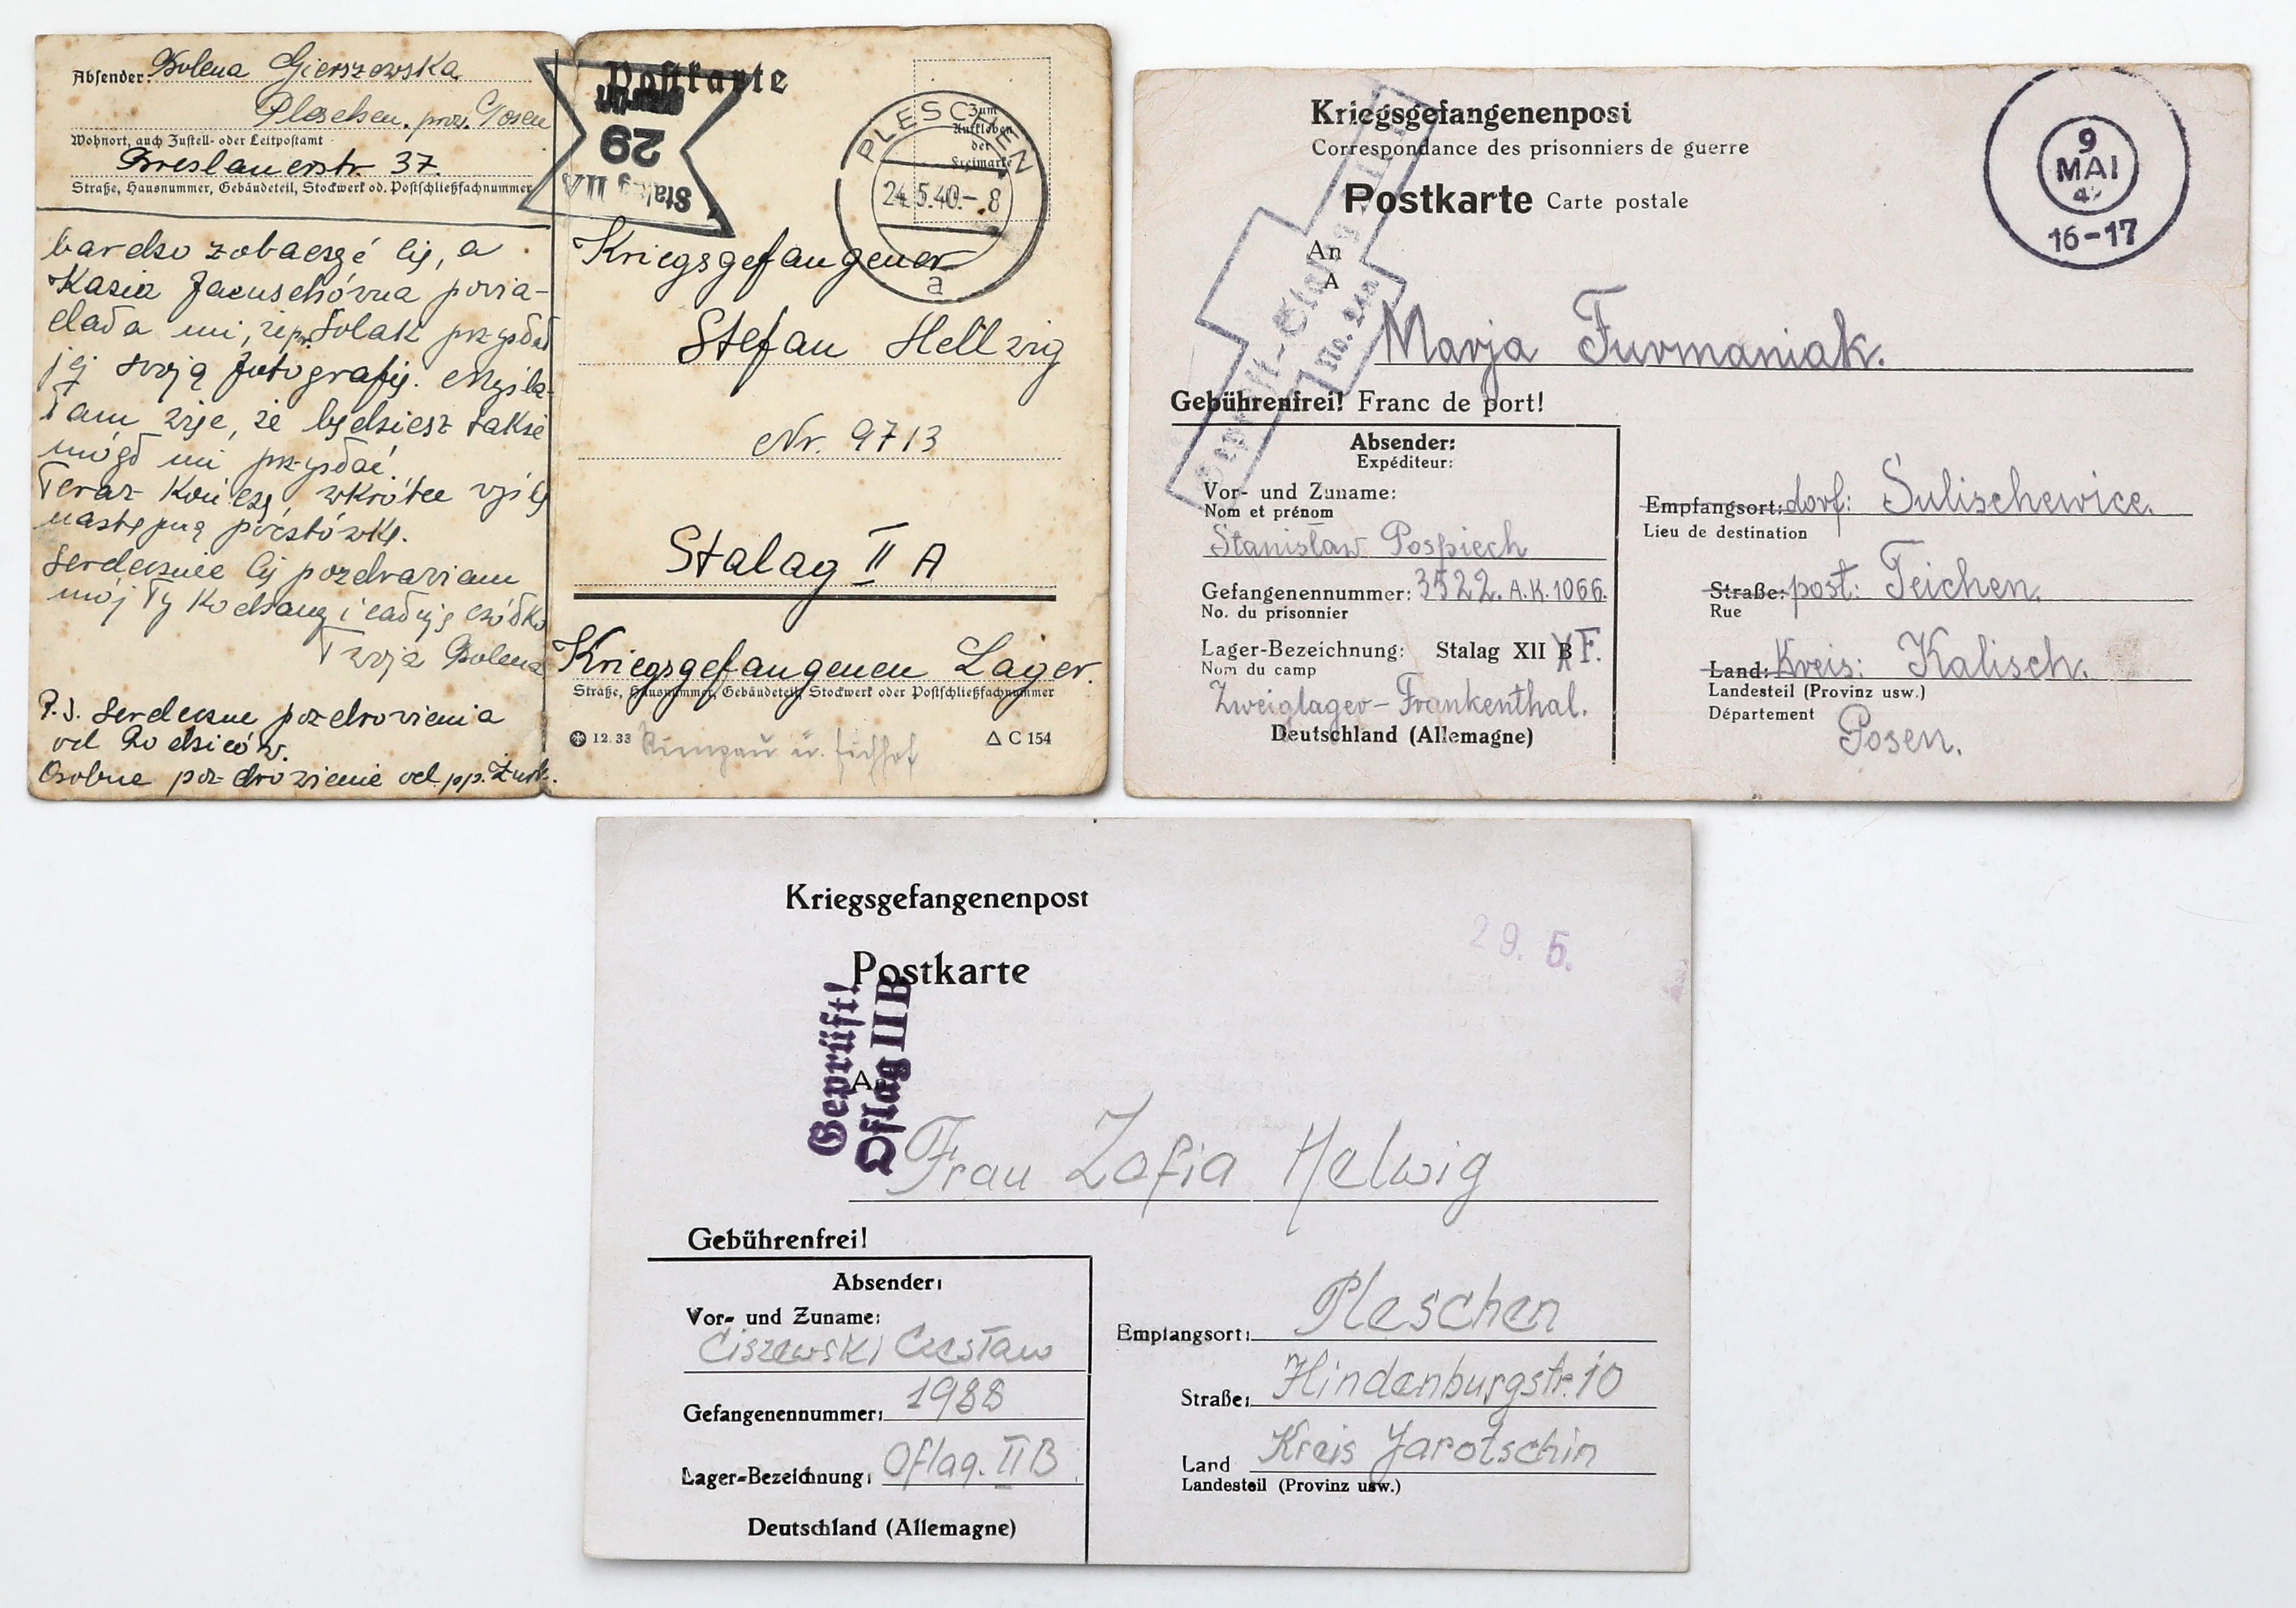 Absender: Bolena Gierszowska
Pleschen. prov. Posen
Wohnort, auch Zustell- oder Leitpostamt
Breslauerstr. 37.
Straße, Hausnummer, Gebäudeteil, Stockwerk od. Postschließfachnummer
bardzo zobaczyć Cię, a
Kazia powie-
działa mi, że p. Solak przysłał
jej swoją fotografię. Myśla-
łam więc, że będziesz także
mógł mi przysłać.
Teraz kończę, wkrótce wyślę
następną pocztówkę.
Serdecznie Cię pozdrawiam
mój Ty Kochany i całuję czółko
Twoja Bolena
P.S. Serdeczne pozdrowienia
od Rodziców.
Osobne pozdrowienie od pp. Żurk.
Postkarte
Geprüft
29
Stalag II A
PLESCHEN
24.5.40.-8
a
Zum
Aufkleben
der
Freimarke
Kriegsgefangener
Stefan Hellwig
Nr. 9713
Stalag II A
Kriegsgefangenen Lager.
Straße, Hausnummer, Gebäudeteil, Stockwerk oder Postschließfachnummer
12. 33
C 154
Kriegsgefangenenpost
Correspondance des prisonniers de guerre
Postkarte Carte postale
9
MAI
16-17
An
A
Marja Furmaniak.
Gebührenfrei! Franc de port!
Absender:
Expéditeur:
Vor- und Zuname:
Nom et prénom
Stanisław Pospiech
Gefangenennummer: 3522. A.K. 1066.
No. du prisonnier
Lager-Bezeichnung: Stalag XII B F.
Nom du camp
Zweiglager - Frankenthal.
Deutschland (Allemagne)
Empfangsort: dorf: Sulischewice.
Lieu de destination
Straße: post: Teichen.
Rue
Land: Kreis: Kalisch.
Landesteil (Provinz usw.)
Département
Posen.
Kriegsgefangenenpost
29. 5.
Postkarte
Geprüft!
Oflag II B
An
Frau Zofia Helwig
Gebührenfrei!
Absender:
Vor- und Zuname:
Ciszewski Czesław
Gefangenennummer: 1988
Lager-Bezeichnung: Oflag. II B
Deutschland (Allemagne)
Empfangsort: Pleschen
Straße: Hindenburgstr. 10
Land Kreis Jarotschin
Landesteil (Provinz usw.)